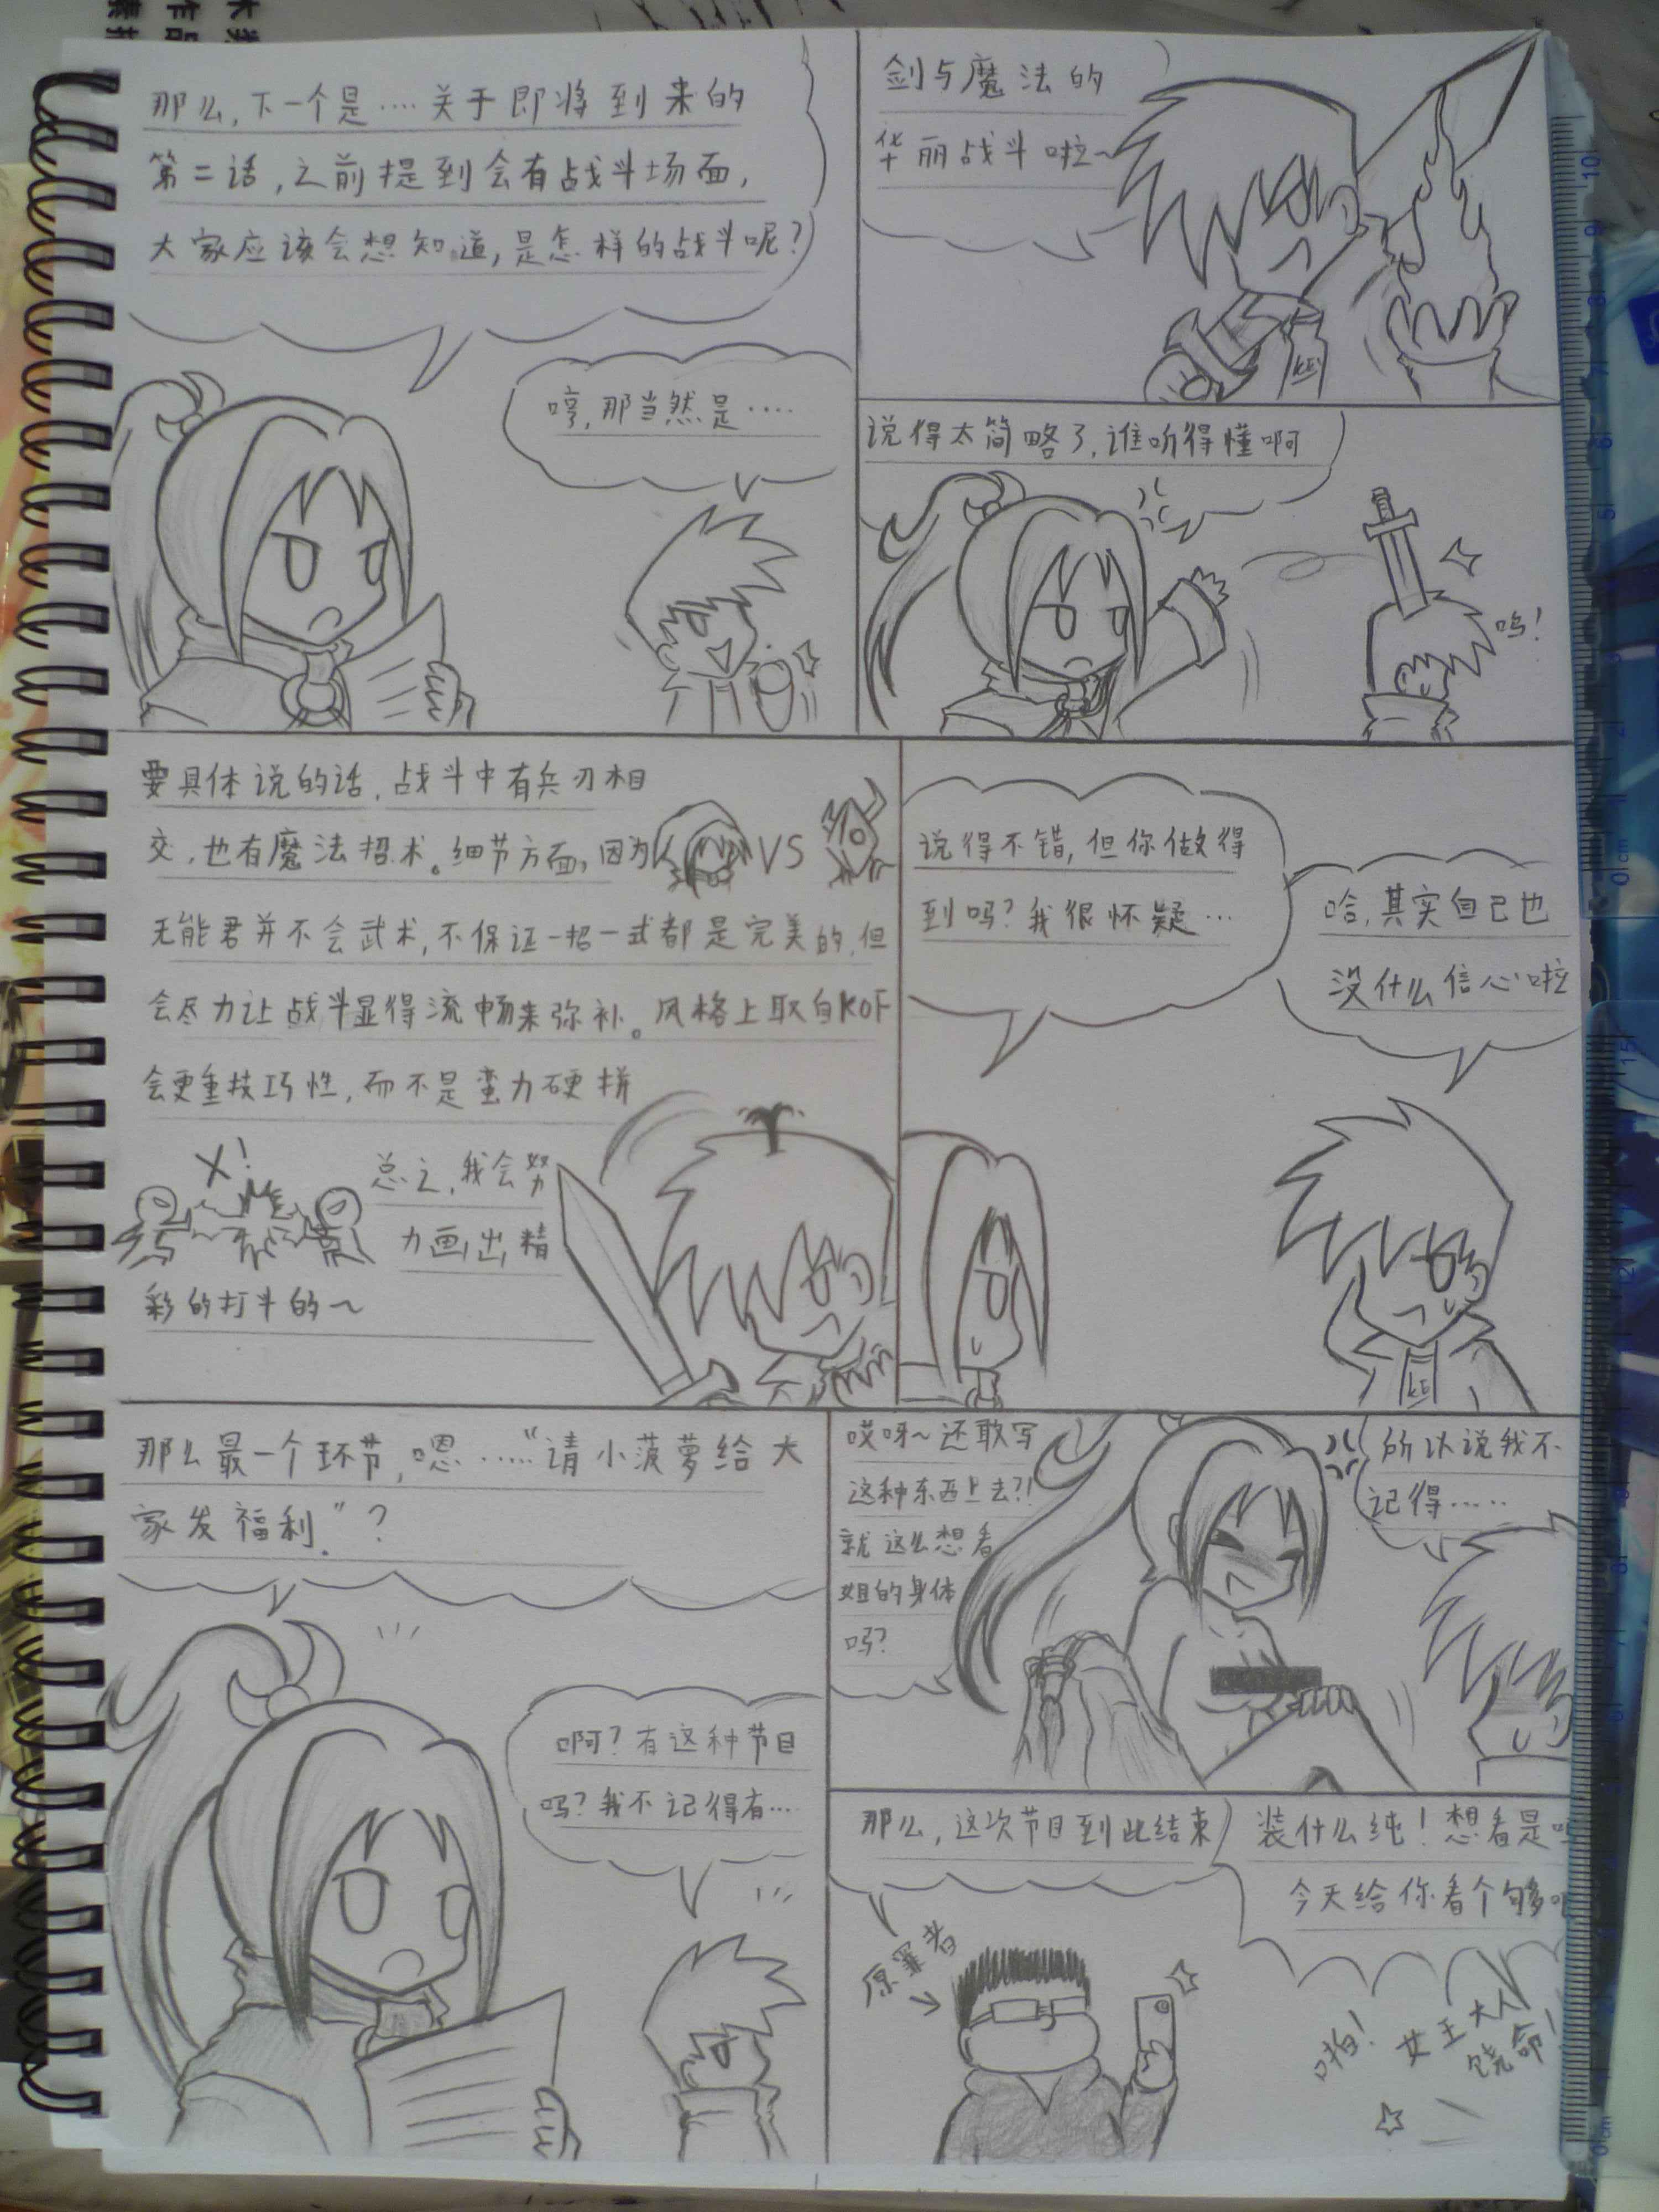 那么,下一个是····关于即将到来的
第二话,之前提到会有战斗场面,
大家应该会想知道,是怎样的战斗呢?
哼,那当然是····
剑与魔法的
华丽战斗啦~
说得太简略了,谁听得懂啊
呜!
要具体说的话,战斗中有兵刃相
交,也有魔法招术。细节方面,因为
VS
无能君并不会武术,不保证一招一式都是完美的,但
会尽力让战斗显得流畅来弥补。风格上取自KOF
会更重技巧性,而不是蛮力硬拼
X!
总之,我会努
力画出精
彩的打斗的~
说得不错,但你做得
到吗?我很怀疑···
哈,其实自己也
没什么信心啦
那么最一个环节,嗯·····“请小菠萝给大
家发福利.”?
啊?有这种节目
吗?我不记得有····
哎呀~还敢写
这种东西上去?!
就这么想看
姐的身体
吗?
所以说我不
记得·····
那么,这次节目到此结束
装什么纯!想看是吗
今天给你看个够吧
原罪者
啪!
女王大人
饶命!